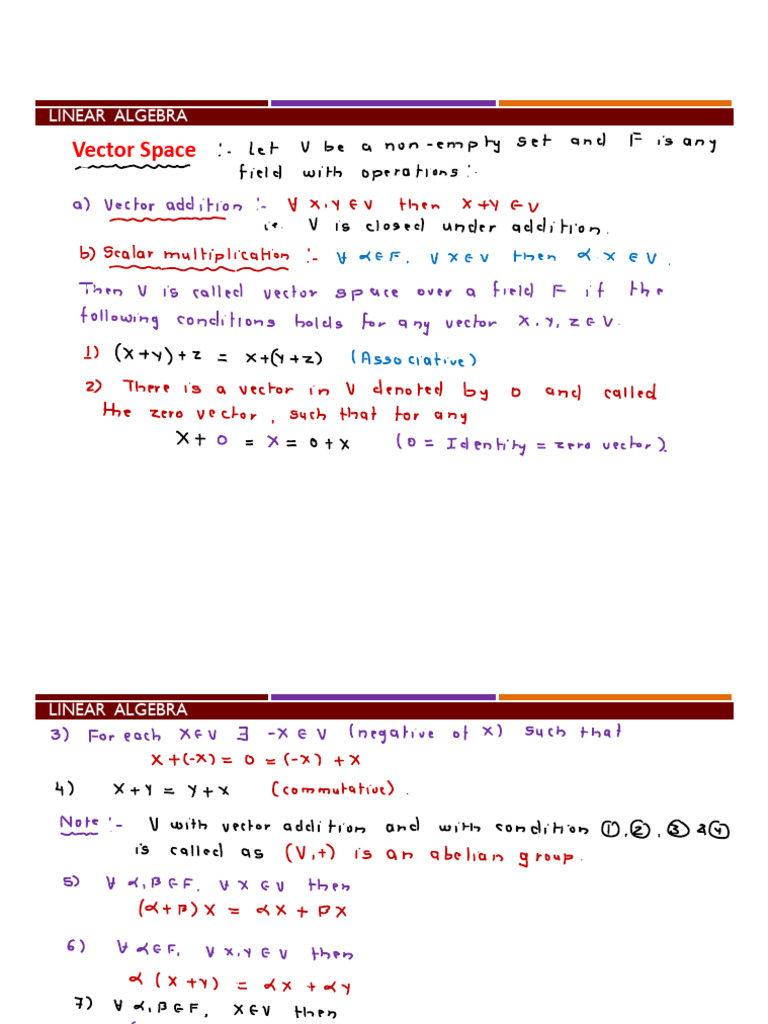 LINEAR ALGEBRA
Vector Space :- Let V be a non-empty set and F is any
field with operations :-
a) Vector addition :- ∀ x, y ∈ V then x+y ∈ V
i.e. V is closed under addition.
b) Scalar multiplication :- ∀ α ∈ F, ∀ x ∈ V then α.x ∈ V.
Then V is called vector space over a field F if the
following conditions holds for any vector x, y, z ∈ V.
1) (x+y)+z = x+(y+z) (Associative)
2) There is a vector in V denoted by 0 and called
the zero vector, such that for any
x+0 = x = 0+x (0 = Identity = zero vector).
LINEAR ALGEBRA
3) For each x∈V ∃ -x ∈ V (negative of x) such that
x+(-x) = 0 = (-x)+x
4) x+y = y+x (commutative).
Note :- V with vector addition and with condition ①, ②, ③ & ④
is called as (V,+) is an abelian group.
5) ∀ α, β ∈ F, ∀ x ∈ V then
(α+β)x = αx + βx
6) ∀ α∈F, ∀ x, y ∈ V then
α(x+y) = αx + αy
7) ∀ α, β ∈ F, x∈V then